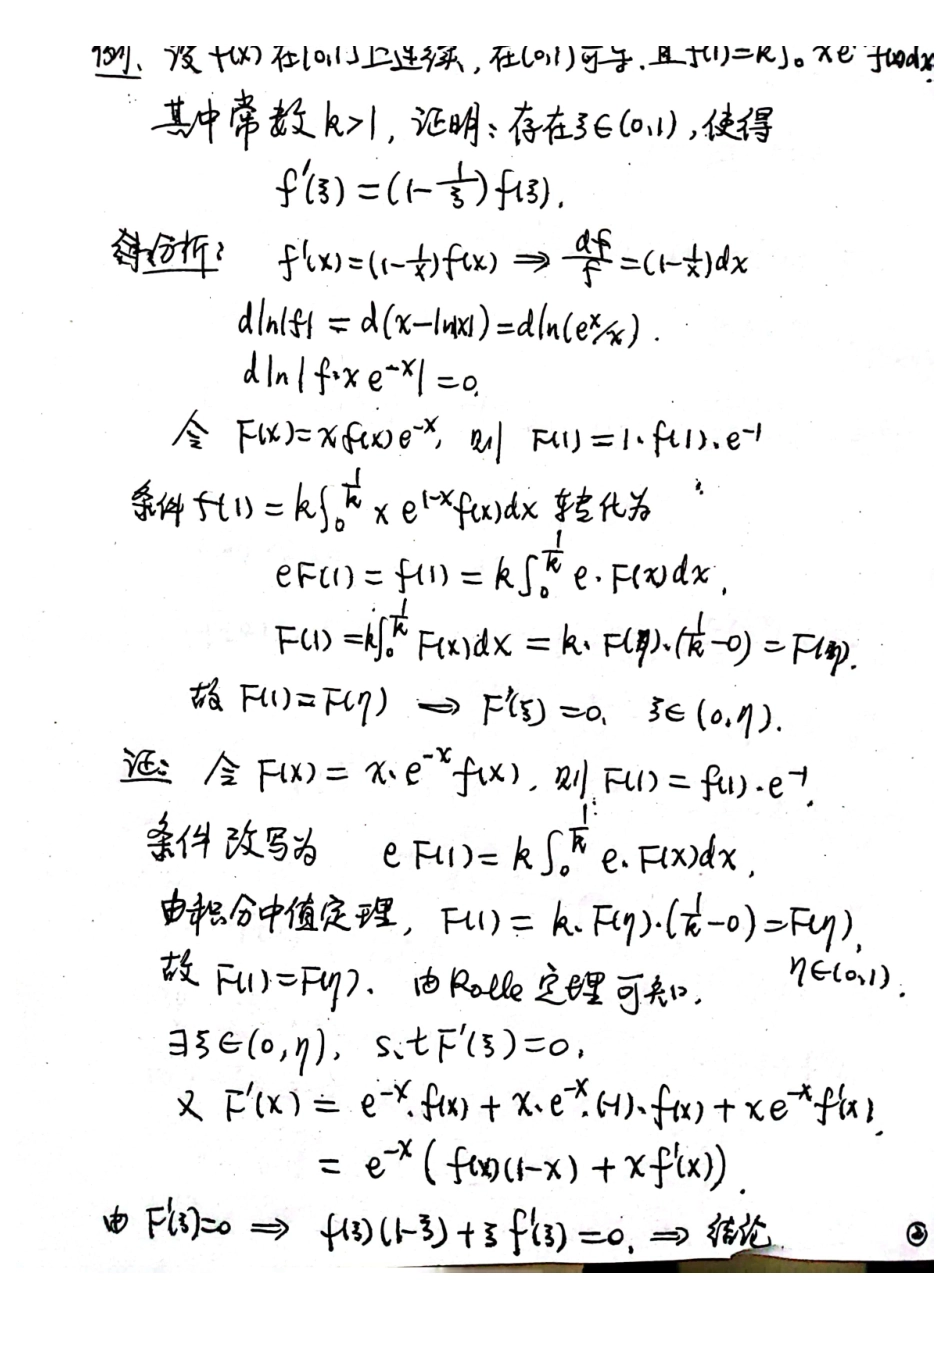 例、设 f(x) 在[0,1]上连续,在(0,1)可导.且f(1)=k∫₀ xe f(x)dx
其中常数k>1,证明:存在ξ∈(0,1),使得
f'(ξ)=(1-1/ξ)f(ξ).
分析: f'(x)=(1-1/x)f(x) ⇒ df/f=(1-1/x)dx
dln|f|=d(x-ln|x|)=dln(eˣ/x).
dln|f·xe⁻ˣ|=0.
令 F(x)=xf(x)e⁻ˣ,则 F(1)=1·f(1)·e⁻¹
条件 f(1)=k∫₀^(1/k) xe^(1-x)f(x)dx 转化为
eF(1)=f(1)=k∫₀^(1/k) e·F(x)dx,
F(1)=k∫₀^(1/k) F(x)dx=k·F(η)·(1/k-0)=F(η).
故 F(1)=F(η) ⇒ F'(ξ)=0, ξ∈(0,η).
证: 令 F(x)=x·e⁻ˣf(x),则 F(1)=f(1)·e⁻¹,
条件改写为 eF(1)=k∫₀^(1/k) e·F(x)dx,
由积分中值定理, F(1)=k·F(η)·(1/k-0)=F(η),
故 F(1)=F(η). 由Rolle定理可知, η∈(0,1).
∃ξ∈(0,η), s.t F'(ξ)=0,
又 F'(x)=e⁻ˣ·f(x)+x·e⁻ˣ·(-1)·f(x)+xe⁻ˣf'(x)
=e⁻ˣ(f(x)(1-x)+xf'(x)).
由 F'(ξ)=0 ⇒ f(ξ)(1-ξ)+ξf'(ξ)=0, ⇒ 结论
②